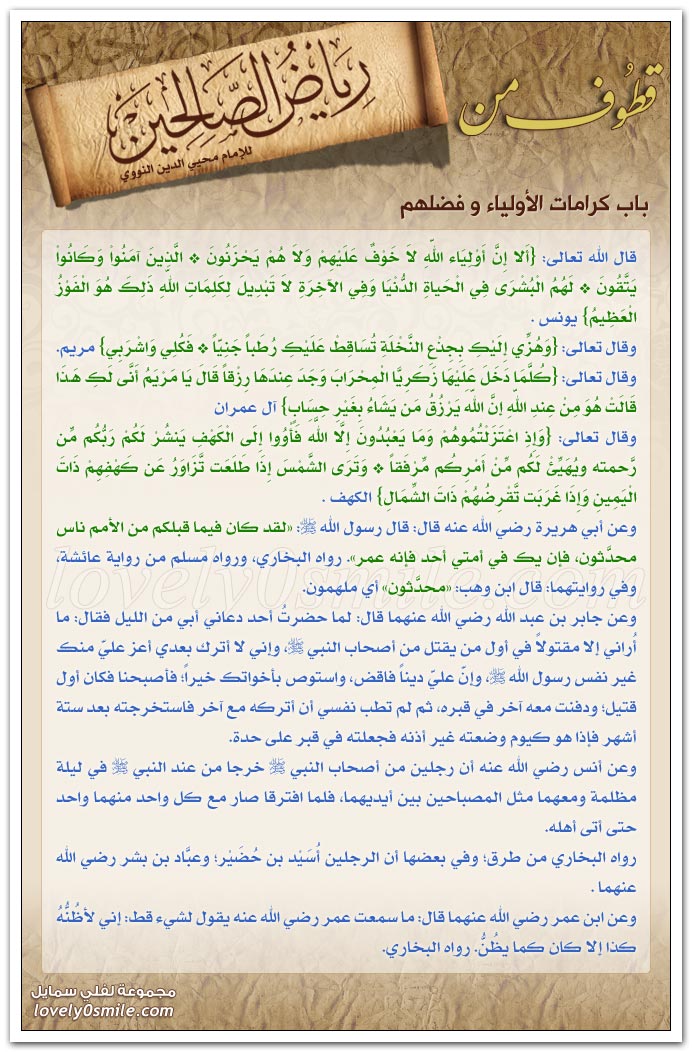 قطوف من
رياض الصالحين
للإمام محيي الدين النووي
باب كرامات الأولياء و فضلهم
قال الله تعالى: {أَلا إِنَّ أَوْلِيَاء اللّهِ لاَ خَوْفٌ عَلَيْهِمْ وَلاَ هُمْ يَحْزَنُونَ ❖ الَّذِينَ آمَنُواْ وَكَانُواْ
يَتَّقُونَ ❖ لَهُمُ الْبُشْرَى فِي الْحَياةِ الدُّنْيَا وَفِي الآخِرَةِ لاَ تَبْدِيلَ لِكَلِمَاتِ اللّهِ ذَلِكَ هُوَ الْفَوْزُ
الْعَظِيمُ} يونس .
وقال تعالى: {وَهُزِّي إِلَيْكِ بِجِذْعِ النَّخْلَةِ تُسَاقِطْ عَلَيْكِ رُطَباً جَنِيّاً ❖ فَكُلِي وَاشْرَبِي} مريم.
وقال تعالى: {كُلَّمَا دَخَلَ عَلَيْهَا زَكَرِيَّا الْمِحْرَابَ وَجَدَ عِندَهَا رِزْقاً قَالَ يَا مَرْيَمُ أَنَّى لَكِ هَذَا
قَالَتْ هُوَ مِنْ عِندِ اللهِ إنَّ اللهَ يَرْزُقُ مَن يَشَاءُ بِغَيْرِ حِسَابٍ} آل عمران
وقال تعالى: {وَإِذِ اعْتَزَلْتُمُوهُمْ وَمَا يَعْبُدُونَ إِلَّا اللَّهَ فَأْوُوا إِلَى الْكَهْفِ يَنشُرْ لَكُمْ رَبُّكُم مِّن
رَّحمته ويُهَيِّئْ لَكُم مِّنْ أَمْرِكُم مِّرْفَقاً ❖ وَتَرَى الشَّمْسَ إِذَا طَلَعَت تَّزَاوَرُ عَن كَهْفِهِمْ ذَاتَ
الْيَمِينِ وَإِذَا غَرَبَت تَّقْرِضُهُمْ ذَاتَ الشِّمَالِ} الكهف .
وعن أبي هريرة رضي الله عنه قال: قال رسول الله ﷺ: «لقد كان فيما قبلكم من الأمم ناس
محدَّثون، فإن يك في أمتي أحد فإنه عمر». رواه البخاري، ورواه مسلم من رواية عائشة،
وفي روايتهما: قال ابن وهب: «محدَّثون» أي ملهمون.
وعن جابر بن عبد الله رضي الله عنهما قال: لما حضرتُ أحد دعاني أبي من الليل فقال: ما
أُراني إلا مقتولاً في أول من يقتل من أصحاب النبي ﷺ، وإني لا أترك بعدي أعز عليّ منك
غير نفس رسول الله ﷺ، وإنّ عليّ ديناً فاقض، واستوص بأخواتك خيراً؛ فأصبحنا فكان أول
قتيل؛ ودفنت معه آخر في قبره، ثم لم تطب نفسي أن أتركه مع آخر فاستخرجته بعد ستة
أشهر فإذا هو كيوم وضعته غير أذنه فجعلته في قبر على حدة.
وعن أنس رضي الله عنه أن رجلين من أصحاب النبي ﷺ خرجا من عند النبي ﷺ في ليلة
مظلمة ومعهما مثل المصباحين بين أيديهما، فلما افترقا صار مع كل واحد منهما واحد
حتى أتى أهله.
رواه البخاري من طرق؛ وفي بعضها أن الرجلين أُسَيْد بن حُضَيْر؛ وعبَّاد بن بشر رضي الله
عنهما .
وعن ابن عمر رضي الله عنهما قال: ما سمعت عمر رضي الله عنه يقول لشيء قط: إني لأظُنُّهُ
كذا إلا كان كما يظُنُّ. رواه البخاري.
lovely0smile.com
مجموعة لفلي سمايل
lovely0smile.com